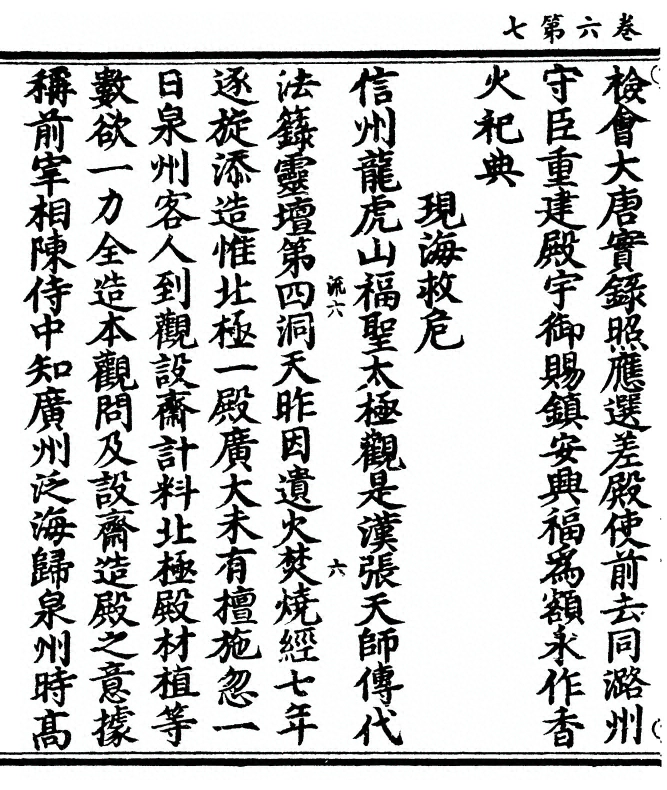 卷六第七
檢會大唐實錄照應選差殿使前去同潞州
守臣重建殿宇御賜鎮安興福為額永作香
火祀典
現海救危
信州龍虎山福聖太極觀是漢張天師傳代
法籙靈壇第四洞天昨因遺火焚燒經七年
逐旋添造惟北極一殿廣大未有擅施忽一
日泉州客人到觀設齋計料北極殿材植等
數欲一力全造本觀問及設齋造殿之意據
稱前宰相陳侍中知廣州泛海歸泉州時高
流六
六